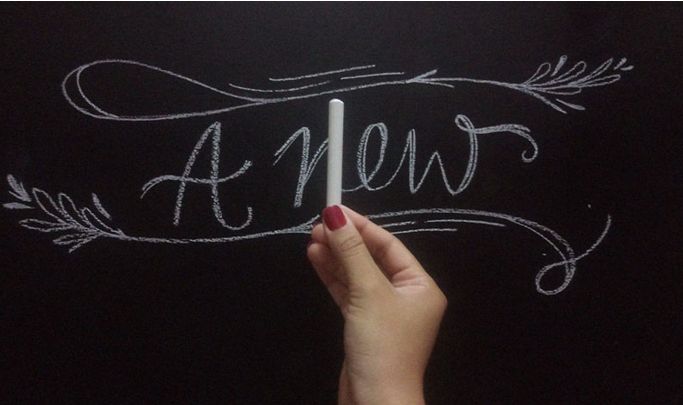 A new